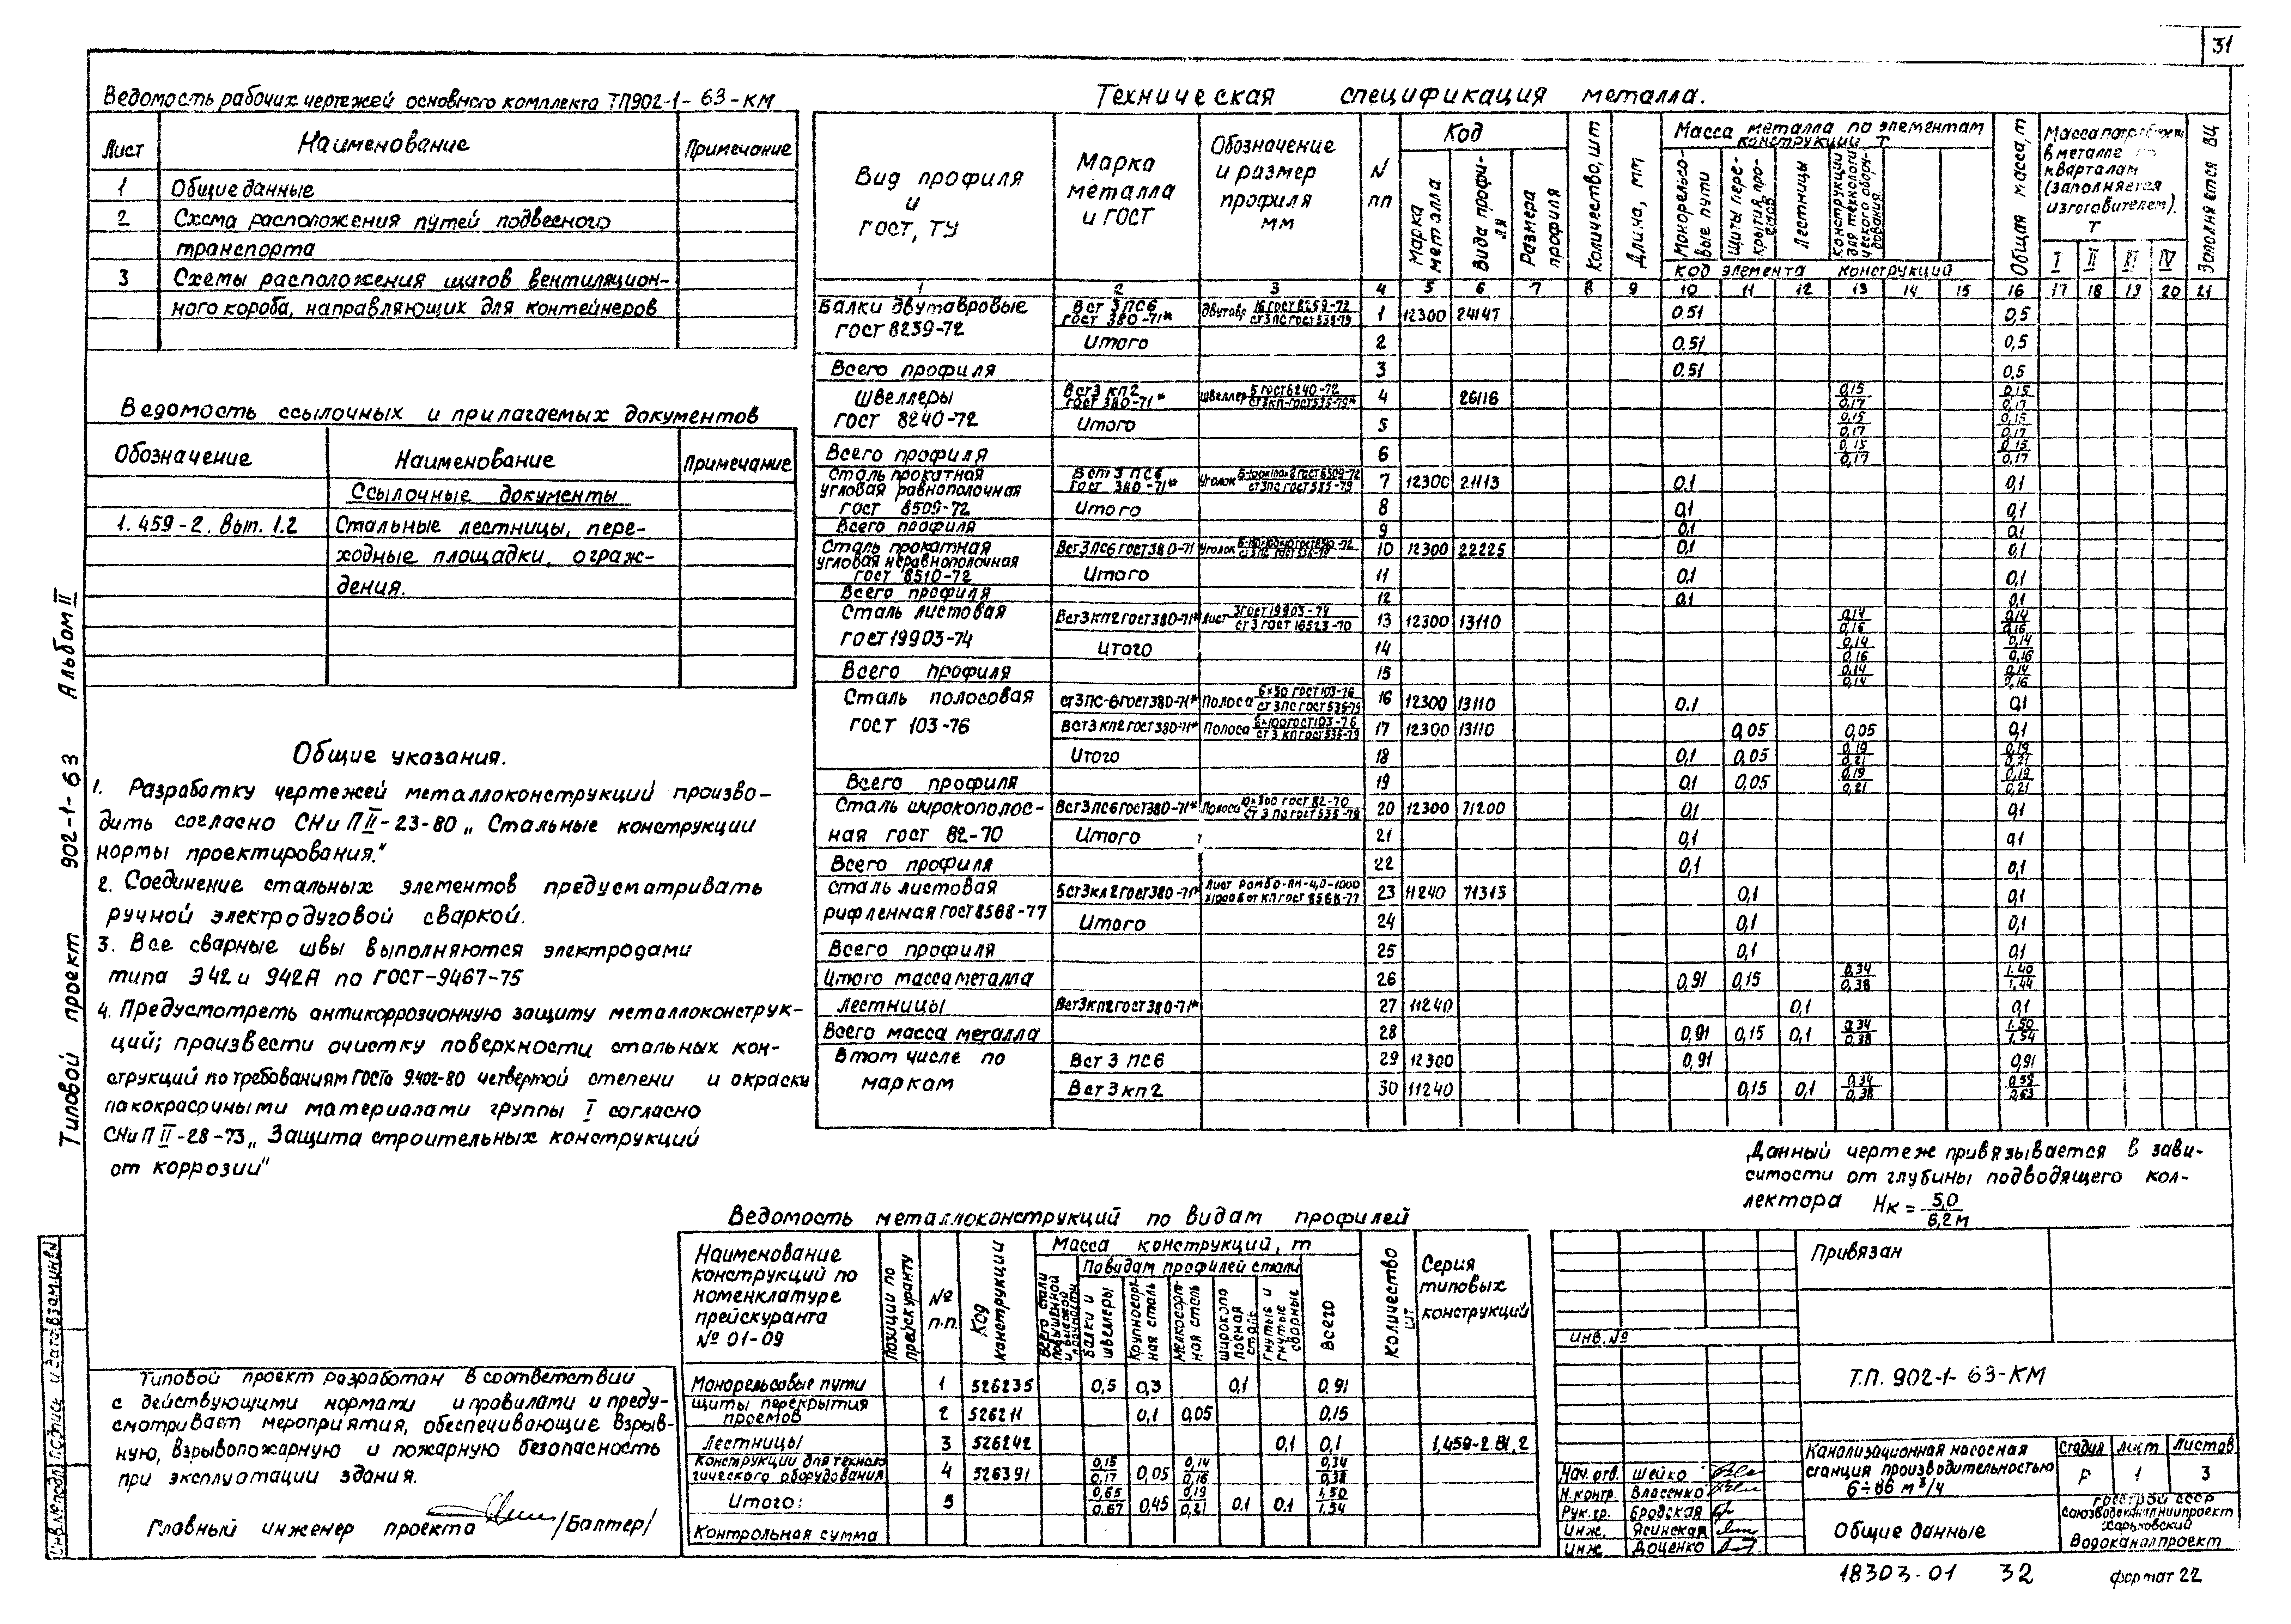 31
Ведомость рабочих чертежей основного комплекта ТП902-1-63-КМ
Лист Наименование Примечание
1 Общие данные
2 Схема расположения путей подвесного
транспорта
3 Схемы расположения щитов вентиляцион-
ного короба, направляющих для контейнеров
Ведомость ссылочных и прилагаемых документов
Обозначение Наименование Примечание
Ссылочные документы
1.459-2. Вып. 1.2 Стальные лестницы, пере-
ходные площадки, ограж-
дения.
Общие указания.
1. Разработку чертежей металлоконструкций произво-
дить согласно СНиП II-23-80 „Стальные конструкции
нормы проектирования."
2. Соединение стальных элементов предусматривать
ручной электродуговой сваркой.
3. Все сварные швы выполняются электродами
типа Э42 и Э42А по ГОСТ-9467-75
4. Предусмотреть антикоррозионную защиту металлоконструк-
ций; произвести очистку поверхности стальных кон-
струкций по требованиям ГОСТа 9.402-80 четвертой степени и окраски
лакокрасочными материалами группы I согласно
СНиП II-28-73 „Защита строительных конструкций
от коррозии"
Типовой проект разработан в соответствии
с действующими нормами и правилами и преду-
сматривает мероприятия, обеспечивающие взрыв-
ную, взрывопожарную и пожарную безопасность
при эксплуатации здания.
Главный инженер проекта /Балтер/
Типовой проект 902-1-63 Альбом II
Инв.№подл. Подпись и дата Взам.инв.№
Техническая спецификация металла.
Вид профиля и ГОСТ, ТУ
Марка металла и ГОСТ
Обозначение и размер профиля мм
N пп
Код
Марка металла
Вида профиля
Размера профиля
Количество, шт
Длина, мм
Масса металла по элементам конструкций, т
Монорельсовые пути
Щиты перекрытия проемов
Лестницы
Конструкции для технологического оборудования
Код элемента конструкций
Общая масса, т
в металле
кварталам
(заполняется
изготовителем).
Т
I II III IV
Заполняется ВЦ
1 2 3 4 5 6 7 8 9 10 11 12 13 14 15 16 17 18 19 20 21
Балки двутавровые ГОСТ 8239-72 Вст 3 пс6 ГОСТ 380-71* Двутавр 16 ГОСТ 8239-72 / ст3пс ГОСТ 535-79 1 12300 24147 0.51 0,5
Итого 2 0.51 0,5
Всего профиля 3 0.51 0.5
Швеллеры ГОСТ 8240-72 Вст3 кп2 ГОСТ 380-71* Швеллер 5 ГОСТ 8240-72 / ст3кп-ГОСТ 535-79* 4 26116 0,15/0,17 0,15/0,17
Итого 5 0,15/0,17 0,15/0,17
Всего профиля 6 0,15/0,17 0,15/0,17
Сталь прокатная угловая равнополочная ГОСТ 8509-72 Вст 3 пс6 ГОСТ 380-71* Уголок 7 12300 21113 0.1 0,1
Итого 8 0,1 0,1
Всего профиля 9 0.1 0.1
Сталь прокатная угловая неравнополочная ГОСТ 8510-72 Вст3пс6 ГОСТ 380-71 Уголок 10 12300 22225 0.1 0,1
Итого 11 0.1 0,1
Всего профиля 12 0.1 0.1
Сталь листовая ГОСТ 19903-74 Вст3кп2 ГОСТ 380-71* Лист 3 ГОСТ 19903-74 / ст 3 ГОСТ 16523-70 13 12300 13110 0,14/0,16 0,14/0,16
Итого 14 0,14/0,16 0,14/0,16
Всего профиля 15 0,14/0,14 0,14/0,16
Сталь полосовая ГОСТ 103-76 ст3пс-6 ГОСТ 380-71* Полоса 6×50 ГОСТ 103-76 / ст 3пс ГОСТ 535-79 16 12300 13110 0.1 0,1
Вст3кп2 ГОСТ 380-71* Полоса 6×100 ГОСТ 103-76 / ст 3 кп ГОСТ 535-79 17 12300 13110 0,05 0,05 0,1
Итого 18 0,1 0,05 0,19/0,21 0,19/0,21
Всего профиля 19 0,1 0,05 0,19/0,21 0,19/0,21
Сталь широкополос-ная ГОСТ 82-70 Вст3пс6 ГОСТ 380-71* Полоса 10×300 ГОСТ 82-70 / ст 3 пс ГОСТ 535-79 20 12300 71200 0,1 0,1
Итого 21 0,1 0,1
Всего профиля 22 0,1 0,1
Сталь листовая рифленная ГОСТ 8568-77 Лист ромбо-ПН-4,0-1000 23 11240 71315 0,1 0,1
Итого 24 0,1 0,1
Всего профиля 25 0,1 0,1
Итого масса металла 26 0,91 0,15 0,34/0,38 1.40/1,44
Лестницы Вст3кп2 ГОСТ 380-71* 27 11240 0,1 0,1
Всего масса металла 28 0,91 0,15 0,1 0,34/0,38 1.50/1,54
В том числе по маркам Вст 3 пс6 29 12300 0,91 0,91
Вст 3 кп2 30 11240 0,15 0,1 0,34/0,38 0,59/0,63
Данный чертеж привязывается в зави-
симости от глубины подводящего кол-
лектора Нк = 5,0/6,2 м
Ведомость металлоконструкций по видам профилей
Наименование конструкций по номенклатуре прейскуранта № 01-09
Позиции по прейскуранту
№ п.п.
Код конструкции
Масса конструкций, т
Всего стали повышенной и высокой прочности
По видам профилей стали
Балки и швеллеры
Крупносортная сталь
Мелкосортная сталь
Широкополосная сталь
Гнутые и гнутые сварные
Всего
Количество шт
Серия типовых конструкций
Монорельсовые пути 1 526235 0,5 0,3 0,1 0.91
Щиты перекрытия проемов 2 526211 0,1 0,05 0,15
Лестницы 3 526242 0,1 0,1 1.459-2.В1,2
Конструкции для технологического оборудования 4 526391 0,15/0,17 0,05 0,14/0,16 0,34/0,38
Итого: 5 0,65/0,67 0,45 0,19/0,21 0.1 0.1 1,50/1,54
Контрольная сумма
Привязан
Инв. №
Т.П. 902-1-63-КМ
Канализационная насосная
станция производительностью
6÷86 м³/ч
Стадия Лист Листов
Р 1 3
Нач. отв. Шейко
Н.контр. Власенко
Рук. гр. Бродская
Инж. Ясинская
Инж. Доценко
Общие данные
Госстрой СССР
Союзводоканалниипроект
Харьковский
Водоканалпроект
18303-01 32 формат 22